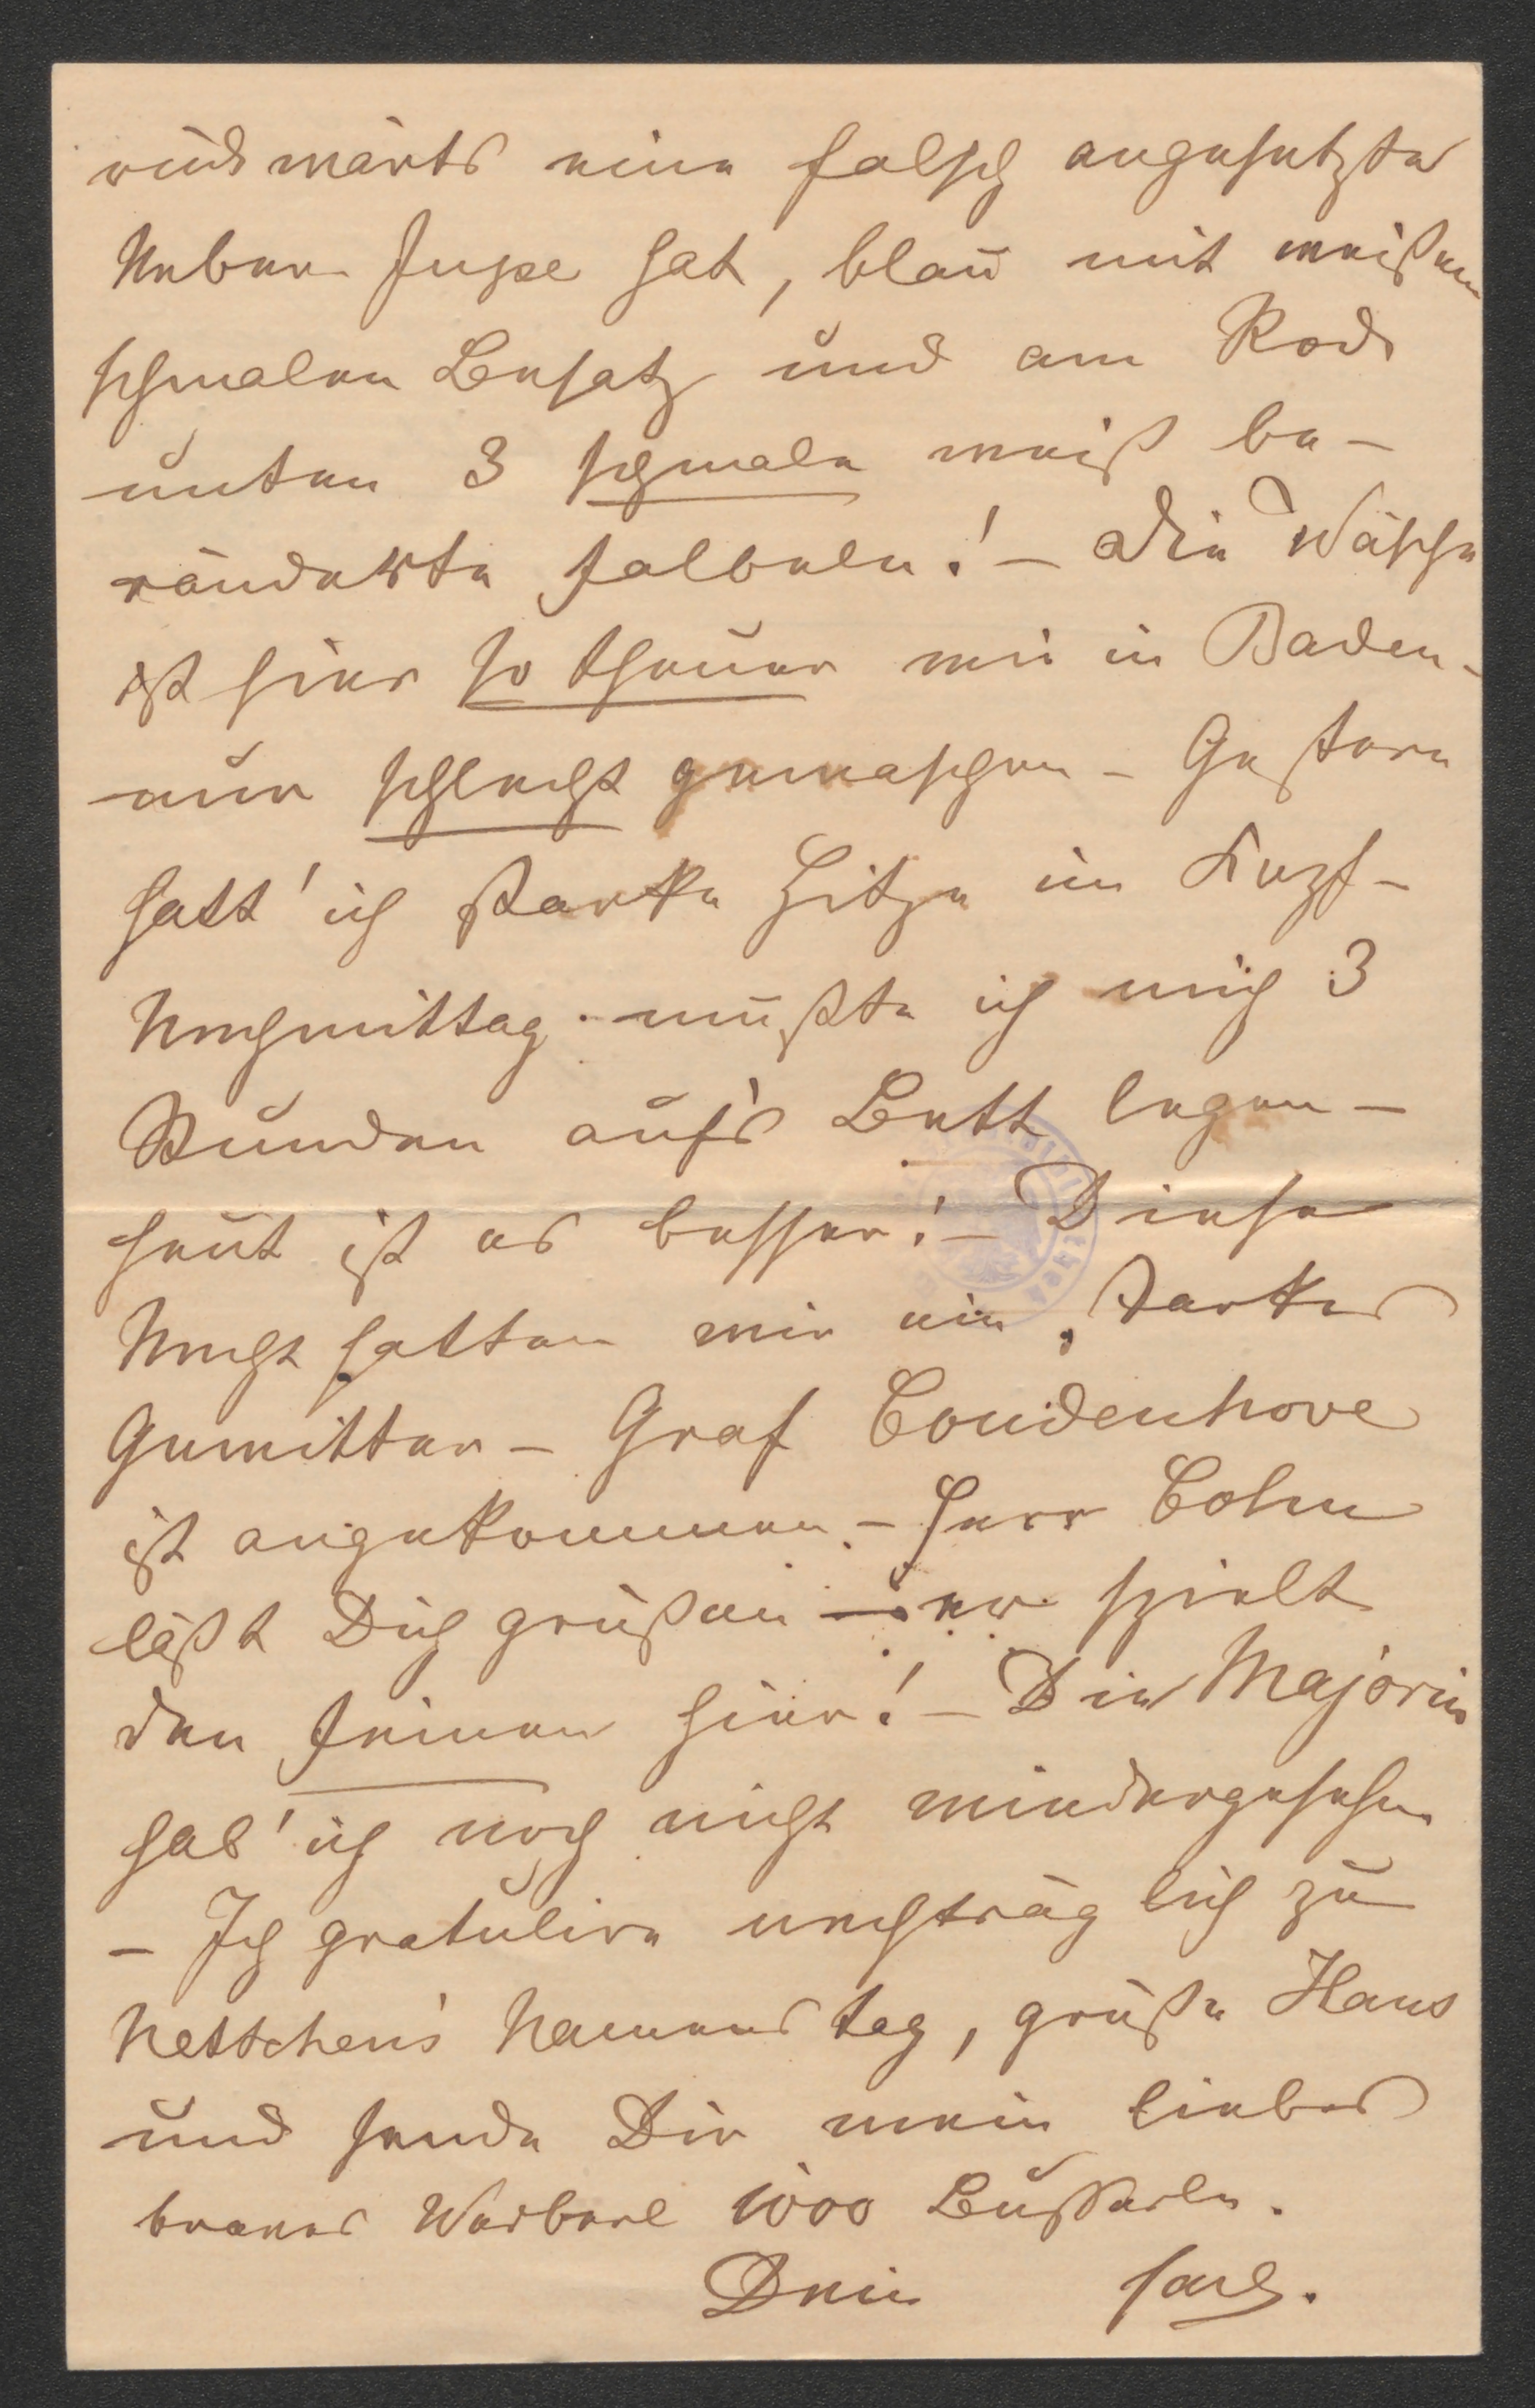 rückwärts eine falsch angesetzte
Ueber Jupe hat, blau mit weißem
schmalen Besatz und am Rock
unten 3 schmale weiß be-
ränderte Falbeln! – Die Wäsche
ist hier so theuer wie in Baden –
nur schlecht gewaschen – Gestern
hatt' ich starke Hitze im Kopf –
Nachmittag mußte ich mich 3
Stunden auf's Bett legen –
heut ist es besser! – Diese
Nacht hatten wir ein starkes
Gewitter – Graf Coudenhove
ist angekommen – Herr Cohn
läßt Dich grüßen – er spielt
den Feinen hier! – Die Majorin
hab' ich noch nicht wiedergesehen
– Ich gratulire nachträglich zu
Nettchen's Namenstag, grüße Hans
und sende Dir mein liebes
braves Weiberl 1000 Busserln.
Dein